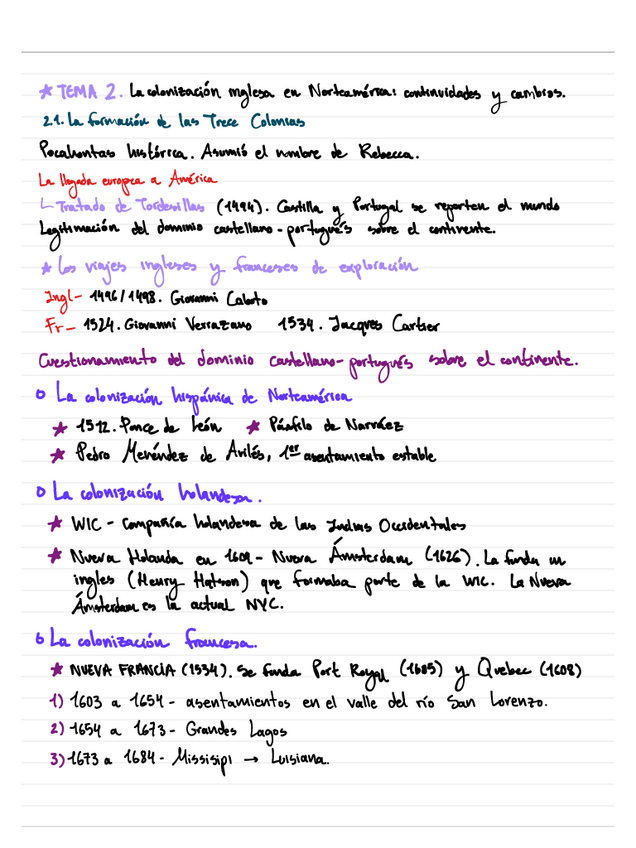 * TEMA 2. La colonización inglesa en Norteamérica: continuidades y cambios.
2.1. La formación de las Trece Colonias
Pocahontas histórica. Asumió el nombre de Rebecca.
La llegada europea a América
Tratado de Tordesillas (1494). Castilla y Portugal se reparten el mundo
Legitimación del dominio castellano-portugués sobre el continente.
* Los viajes ingleses y franceses de exploración
Ingl- 1496/1498. Giovanni Caboto
Fr- 1524. Giovanni Verrazano 1534. Jacques Cartier
Cuestionamiento del dominio castellano-portugués sobre el continente.
o La colonización hispánica de Norteamérica
* 1512. Ponce de León * Pánfilo de Narváez
* Pedro Menéndez de Avilés, 1er asentamiento estable
o La colonización holandesa.
* WIC - Compañía holandesa de las Indias Occidentales
* Nueva Holanda en 1609 - Nueva Ámsterdam (1626). La funda un
ingles (Henry Hatson) que formaba parte de la WIC. La Nueva
Ámsterdam es la actual NYC.
o La colonización francesa.
* NUEVA FRANCIA (1534). Se funda Port Royal (1605) y Quebec (1608)
1) 1603 a 1654 - asentamientos en el valle del río San Lorenzo.
2) 1654 a 1673 - Grandes Lagos
3) 1673 a 1684 - Missisipi → Luisiana.